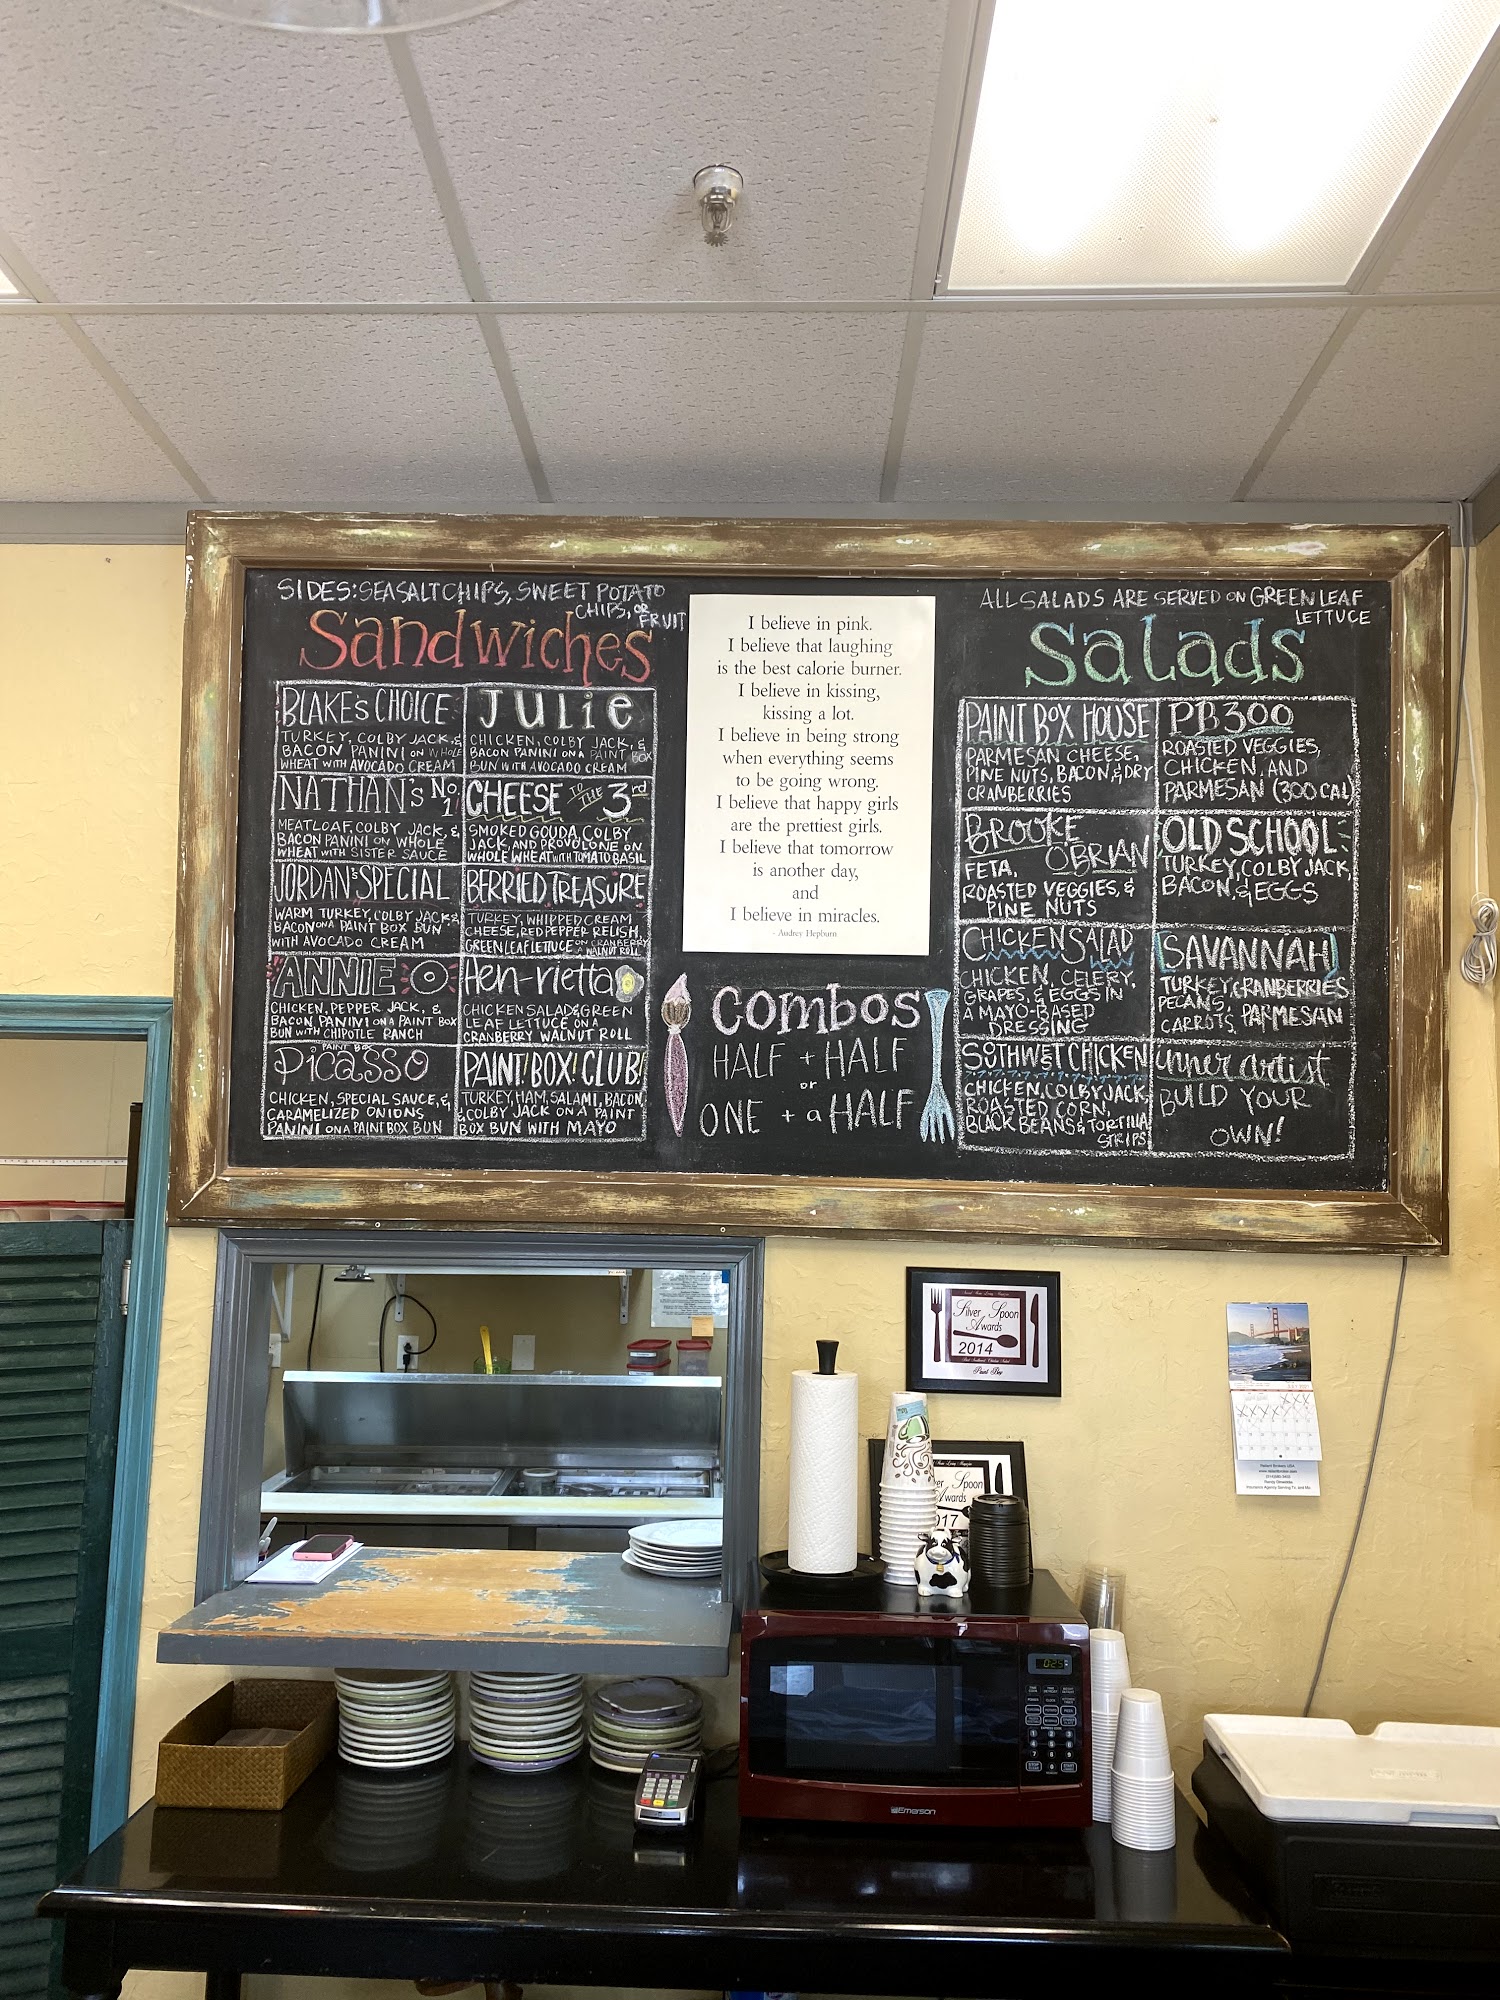 SIDES: SEA SALT CHIPS, SWEET POTATO
CHIPS, OR
FRUIT
Sandwiches
BLAKE'S CHOICE
TURKEY, COLBY JACK, &
BACON PANINI ON WHOLE
WHEAT WITH AVOCADO CREAM
JULIE
CHICKEN, COLBY JACK, &
BACON PANINI ON A PAINT BOX
BUN WITH AVOCADO CREAM
NATHAN'S No. 1!
MEATLOAF, COLBY JACK, &
BACON PANINI ON WHOLE
WHEAT WITH SISTER SAUCE
CHEESE TO THE 3rd
SMOKED GOUDA, COLBY
JACK, AND PROVOLONE ON
WHOLE WHEAT WITH TOMATO BASIL
JORDAN'S SPECIAL
WARM TURKEY, COLBY JACK &
BACON ON A PAINT BOX BUN
WITH AVOCADO CREAM
BERRIED TREASURE
TURKEY, WHIPPED CREAM
CHEESE, RED PEPPER RELISH,
GREEN LEAF LETTUCE ON CRANBERRY
WALNUT ROLL
ANNIE O
CHICKEN, PEPPER JACK, &
BACON PANINI ON A PAINT BOX
BUN WITH CHIPOTLE RANCH
Hen-rietta
CHICKEN SALAD & GREEN
LEAF LETTUCE ON A
CRANBERRY WALNUT ROLL
PAINT BOX
Picasso
CHICKEN, SPECIAL SAUCE, &
CARAMELIZED ONIONS
PANINI ON A PAINT BOX BUN
PAINT! BOX! CLUB!
TURKEY, HAM, SALAMI, BACON,
& COLBY JACK ON A PAINT
BOX BUN WITH MAYO
I believe in pink.
I believe that laughing
is the best calorie burner.
I believe in kissing,
kissing a lot.
I believe in being strong
when everything seems
to be going wrong.
I believe that happy girls
are the prettiest girls.
I believe that tomorrow
is another day,
and
I believe in miracles.
- Audrey Hepburn
Combos
HALF + HALF
or
ONE + a HALF
ALL SALADS ARE SERVED ON GREEN LEAF
LETTUCE
Salads
PAINT BOX HOUSE
PARMESAN CHEESE,
PINE NUTS, BACON, & DRY
CRANBERRIES
PB300
ROASTED VEGGIES,
CHICKEN, AND
PARMESAN (300 CAL)
BROOKE
O'BRIAN
FETA,
ROASTED VEGGIES, &
PINE NUTS
OLD SCHOOL
TURKEY, COLBY JACK,
BACON, & EGGS
CHICKEN SALAD
CHICKEN, CELERY,
GRAPES, & EGGS IN
A MAYO-BASED
DRESSING
SAVANNAH
TURKEY, CRANBERRIES
PECANS,
CARROTS, PARMESAN
SOTHWEST CHICKEN
CHICKEN, COLBY JACK,
ROASTED CORN,
BLACK BEANS & TORTILLA
STRIPS
inner artist
BUILD YOUR
OWN!
Silver Spoon
Awards
2014
Paint Box
Spoon
Awards
017
Emerson
0:25